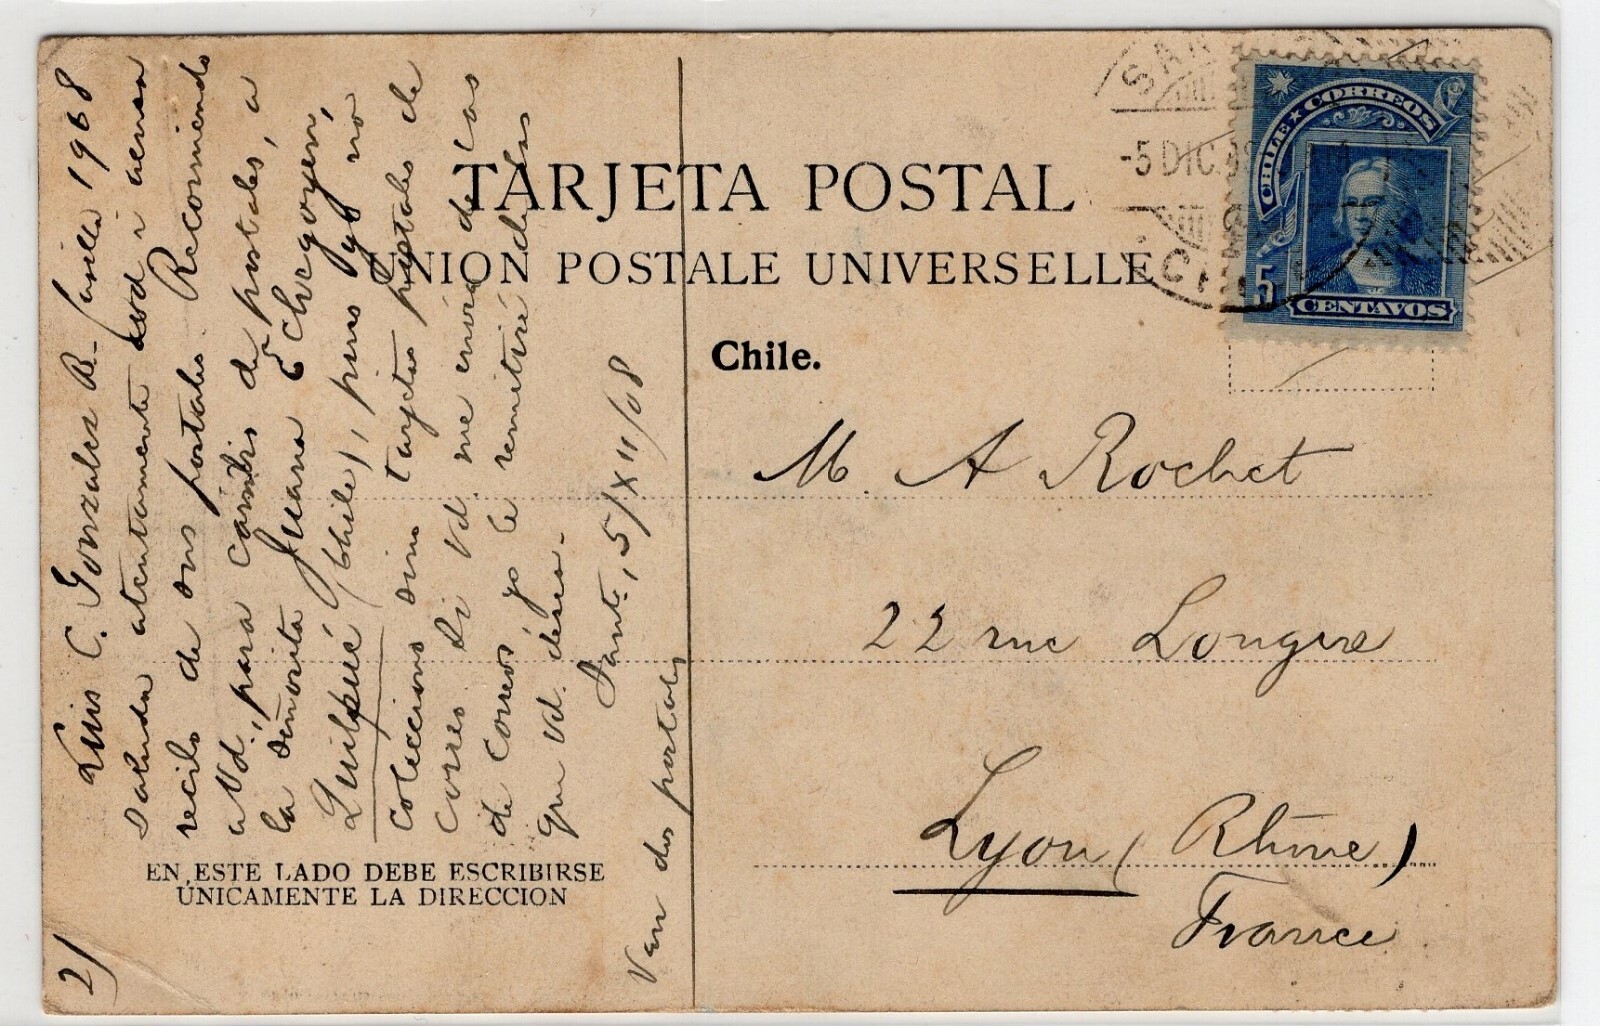 TARJETA POSTAL
UNION POSTALE UNIVERSELLE
Chile.
CHILE ★ CORREOS
5
CENTAVOS
-5 DIC.
M. A Rochet
22 rue Longue
Lyon (Rhône)
France
Luis C. Gonzalez R. Casilla 1968
saluda atentamente a Vd i acusa
recibo de sus postales. Recomiendo
a Vd., para cambio de postales, a
la señorita Juana Echegoyen,
Quilpué (Chile), pues yo no
colecciono sino tarjetas postales de
correo. Si Vd. me envía de las
de correos, yo le remitiré de las
que Vd. desea.-
Santo, 5/XII/08
Van dos postales
EN ESTE LADO DEBE ESCRIBIRSE
ÚNICAMENTE LA DIRECCION
2)